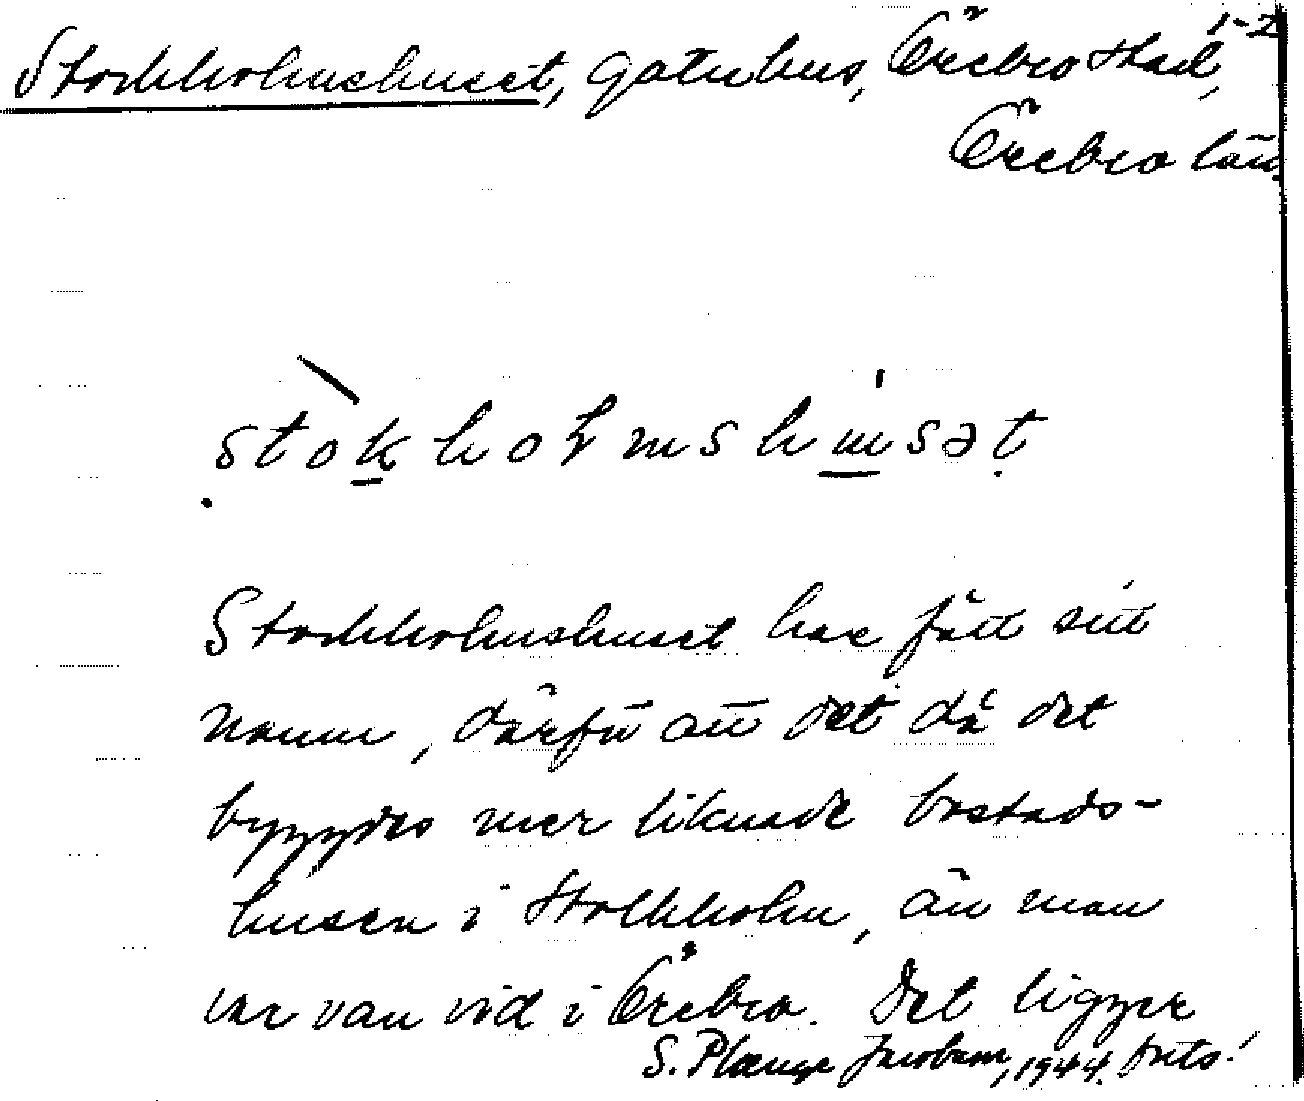 1-2
Stockholmshuset, gatuhus, Örebro stad,
Örebro län.
stòkholmshusət
Stockholmshuset har fått sitt
namn, därför att det då det
byggdes mer liknade bostads-
husen i Stockholm, än man
var van vid i Örebro. Det ligger
S. Plænge Jacobson, 1944. forts!